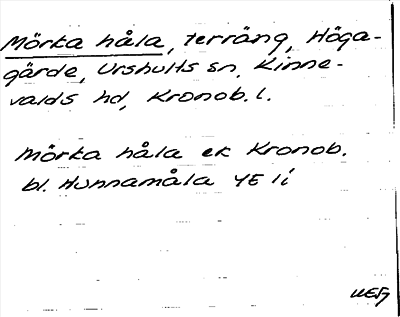 Mörka håla, terräng, Höga-
gärde, Urshults sn, Kinne-
valds hd, Kronob. l.
Mörka håla ek Kronob.
bl. Hunnamåla YE 1i